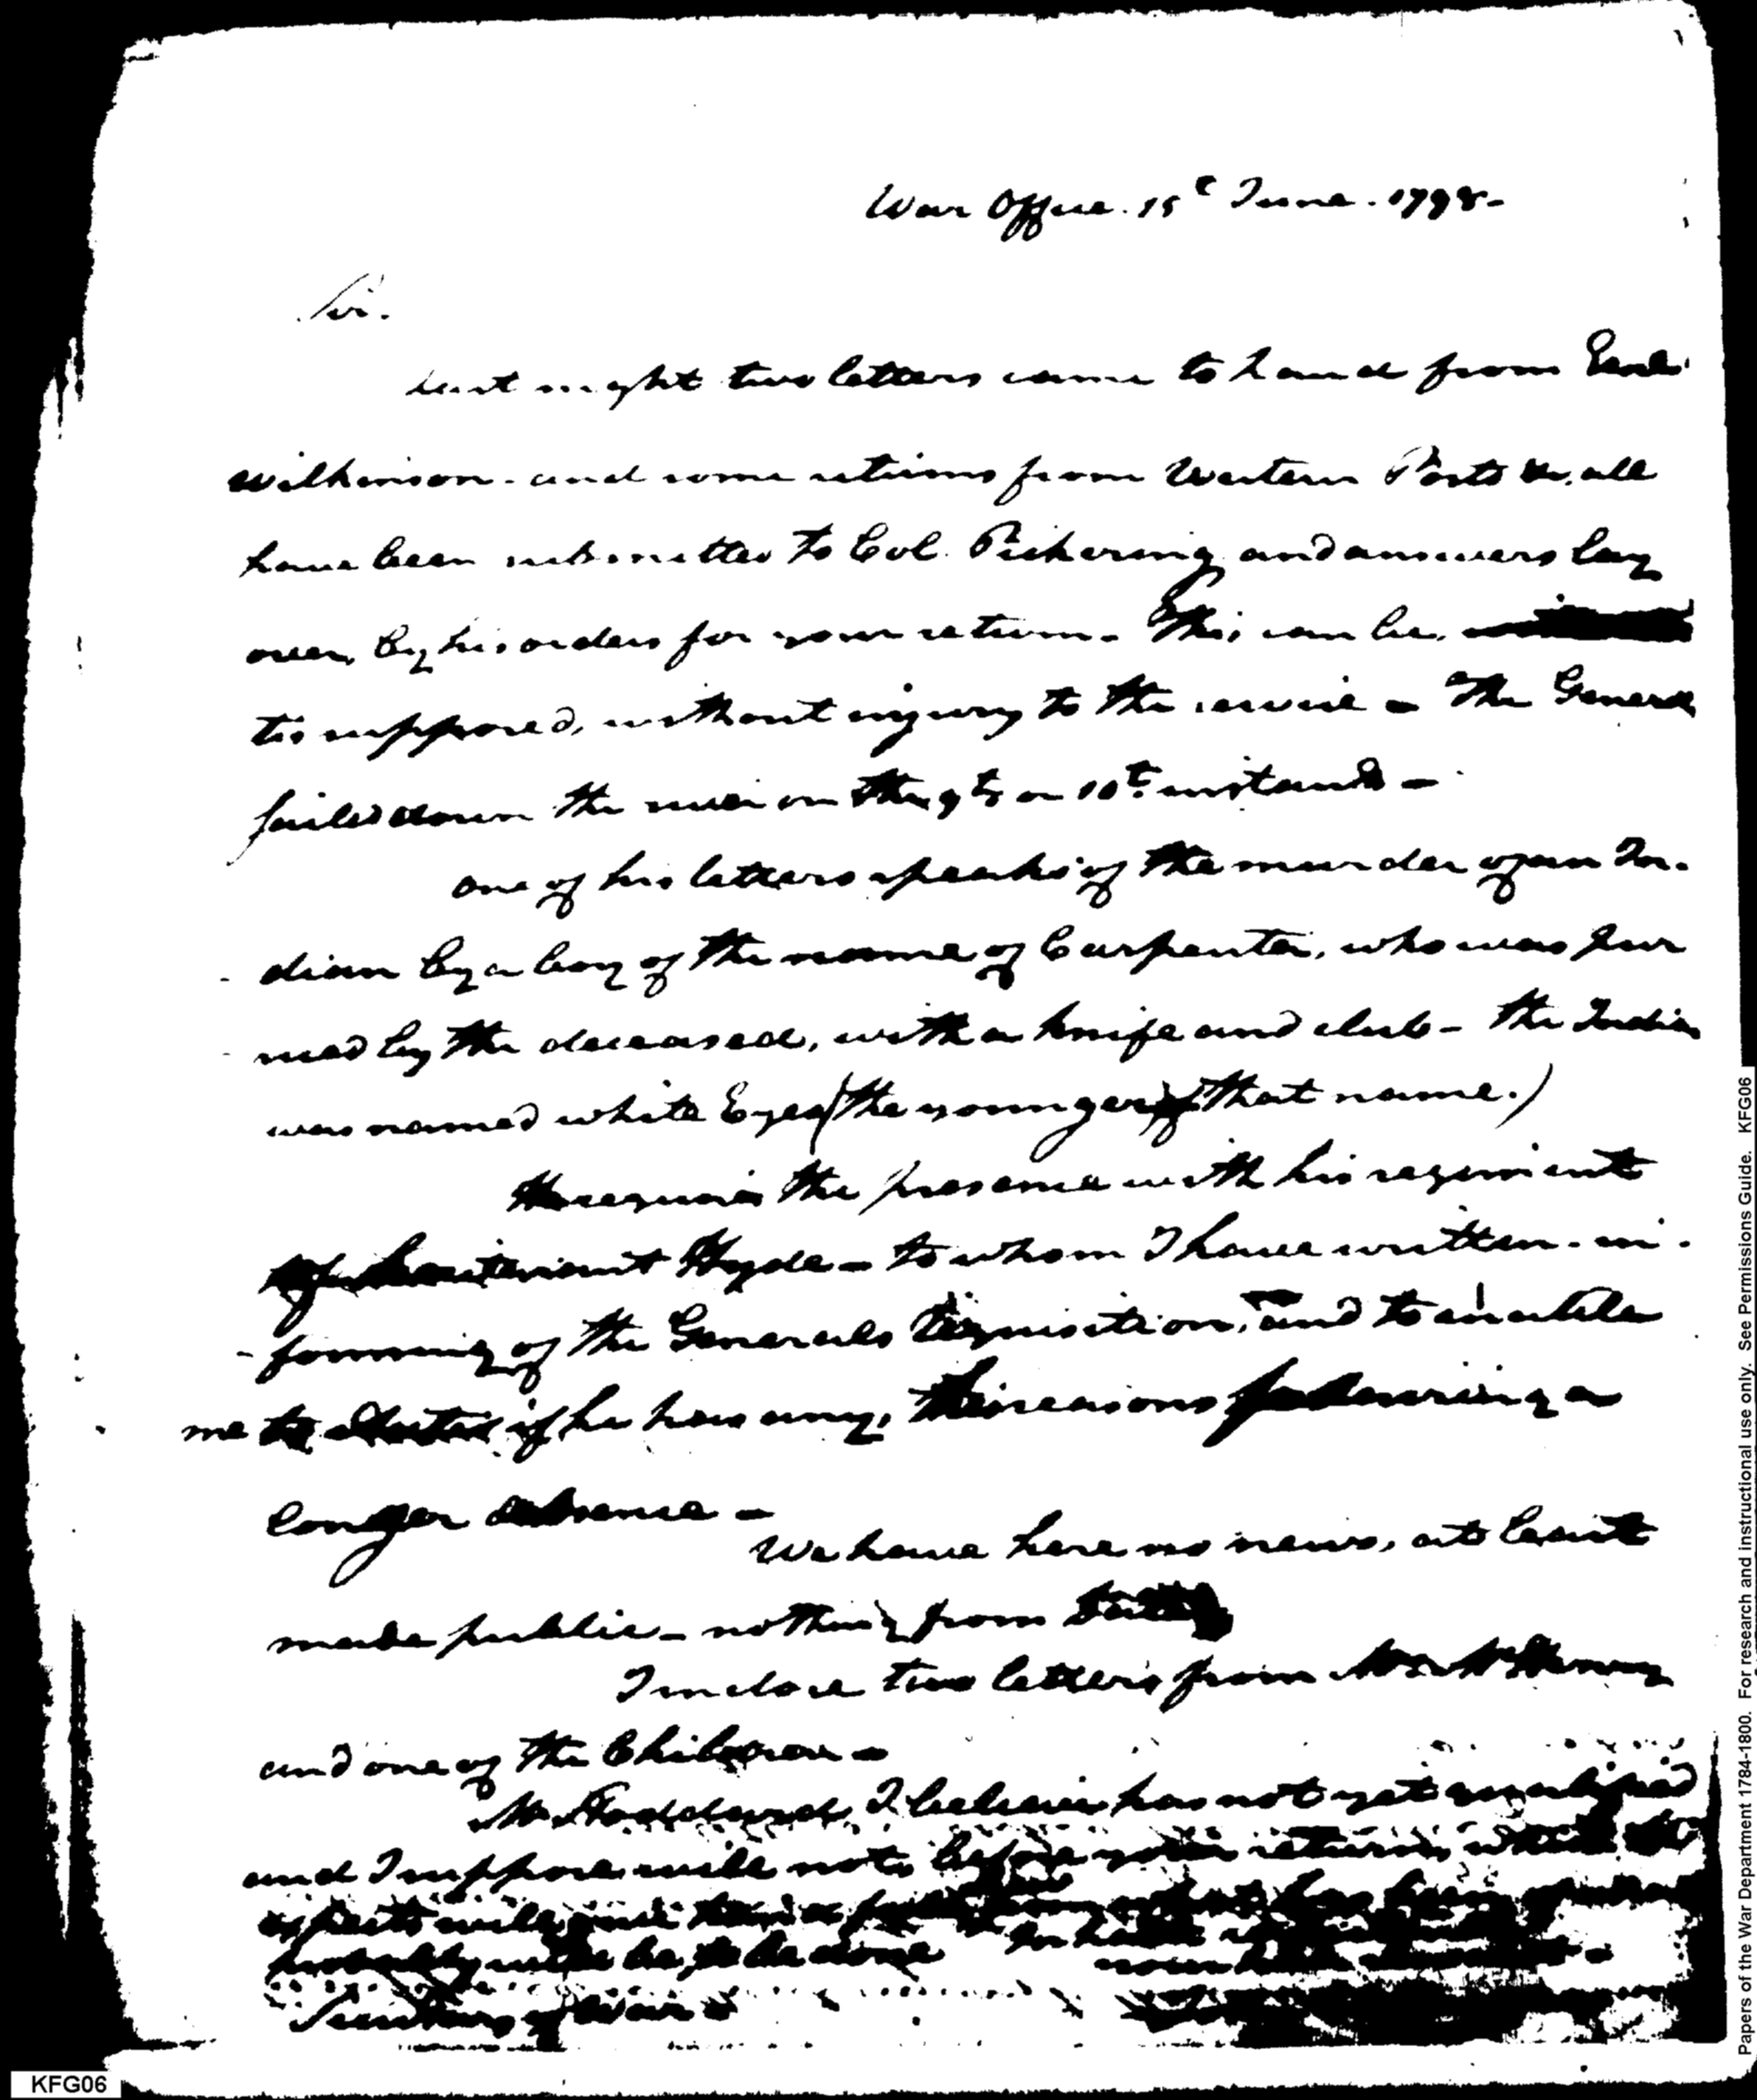 War Office. 15t June. 1798-
Sir.
Last night two letters came to hand from Genl
Wilkinson. and some returns from Western Posts &c. all
have been submitted to Col. Pickering and answers lay
over, by his orders for your return. This can be,
tis supposed, without injury to the service - The General
sailed down the river on the 9th or 10t. instant -
One of his letters speaks of the murder of an In-
-dian by a boy of the name of Carpenter, who was pur
-sued by the deceased, with a knife and club - the Indian
was named white Eyes (the younger of that name.)
requires the presence with his regiment
of Lieutenant Hyde - to whom I have written - in-
-forming of the Generals requisition, and to enable
me to state if he has any, reasons for desiring a
longer absence -
We have here no news, at least
made public - nothing from
I inclose two letters from Mrs McHenry
and one of the Children -
Mr Stoddard I believe has not yet qualified
and I suppose will not before your return,
will be to be done
Secretary of War
KFG06
Papers of the War Department 1784-1800. For research and instructional use only. See Permissions Guide. KFG06